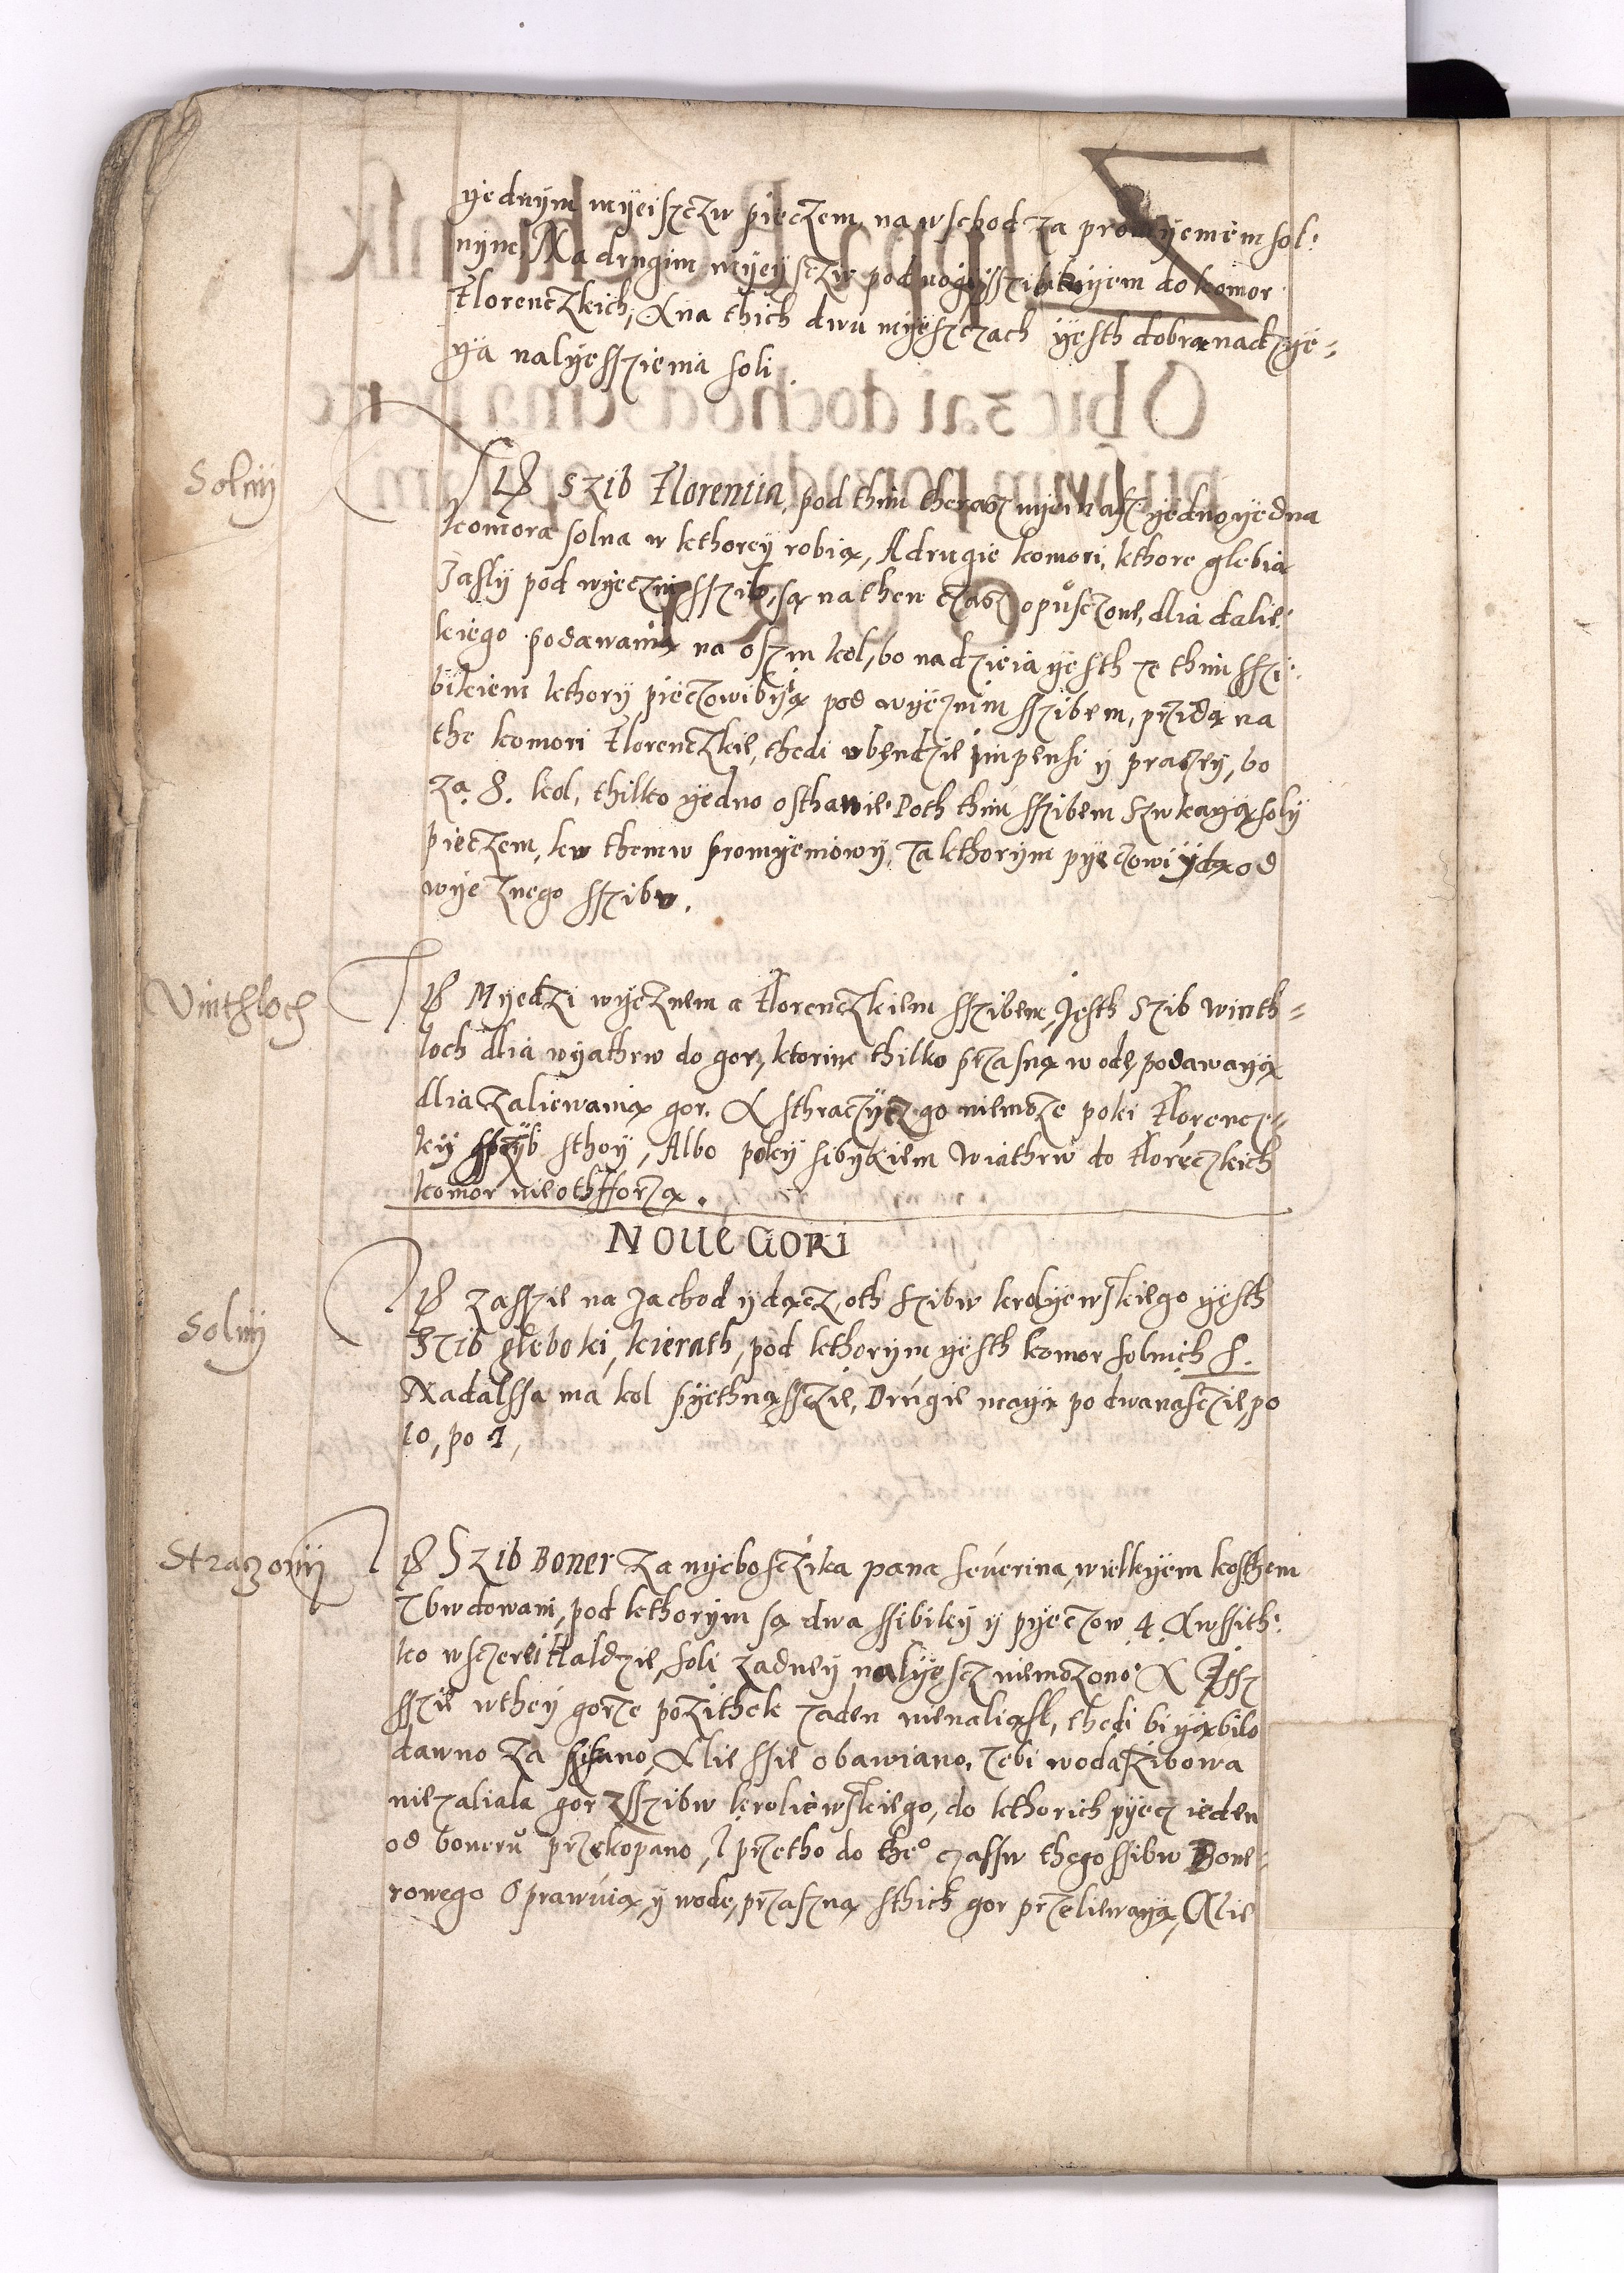 yednÿm mÿeisczw pieczem, na wschod za promyemem sol:
nÿm, Na drugim mÿeÿsczw pod nogi sszibikÿem do komor
Florenczkich, A na thich dwu mÿesczach ÿesth dobra nadzÿe=
ÿa nalÿesszienia soli
Solnÿ
Szib Florentia, pod thim theraz ÿedno ÿedna
komora solna w kthoreÿ robią, A drugie komori, kthore glebia
Zaslÿ pod wÿeczni sszib, są na then czasz opůsczone, dlia dalie:
kiego podawania na oszm kol, bo nadzieia ÿesth ze thim sszi:
bikiem kthorÿ pieczowi biÿą pod wÿeznim sszibem, przidą na
the komori Florenczkie, thedi vbęndzie impensi ÿ praczeÿ, bo
za. 8. kol, thilko ÿedno osthawie. Poth thim sszibem Szukaÿą solÿ
pieczem, kw themw promÿeniowÿ, za kthorÿm pÿeczowi ÿdą od
wÿeznego sszibv.
Vinthloch
Mÿedzi wÿeznem a Florenczkiem sszibem, Jesth Szib winth=
loch dlia wÿathrw do gor, ktorim thilko przasną wodę podawaÿą
dlia zaliewania gor. A sthraczÿcz go niemoze poki Florencz=
kÿ sszÿb sthoÿ, Albo pokÿ sibÿkiem Wiathrw do Floréczkich
komor nieothfforzą.
NOVE GORI
Solnÿ
Zasszie na Zachod ÿdącz, oth szibw krolÿewskiego ÿesth
Szib głęboki, kierath, pod kthorÿm ÿesth komor solnich 8.
Nadalssa ma kol pÿethnąsczie, Drugie maÿą po dwanasczie, po
10, po 9,
Strazonÿ
Szib Boner za nÿebosczika pana Seuerina, wielkÿem kosthem
Zbwdowani, pod kthorÿm są dwa ssibikÿ ÿ pÿeczow 4. A wssith:
ko wsczerei Haldzie, Soli zadneÿ nalÿescz niemozono. A Issz
sszie wtheÿ gorze pozithek zaden nienaliasl, thedi bi ÿą bilo
dawno za sipano, Alie ssie obawiano, zebi woda szibowa
niezaliala gor z sszibw kroliewskiego, do kthorich pÿecz ieden
od boneru̇ przekopano, I przetho do the° czassw thego ssibw Bone=
rowego Oprawuią, ÿ wodę, przaszną sthich gor przeliewaÿą, Alie